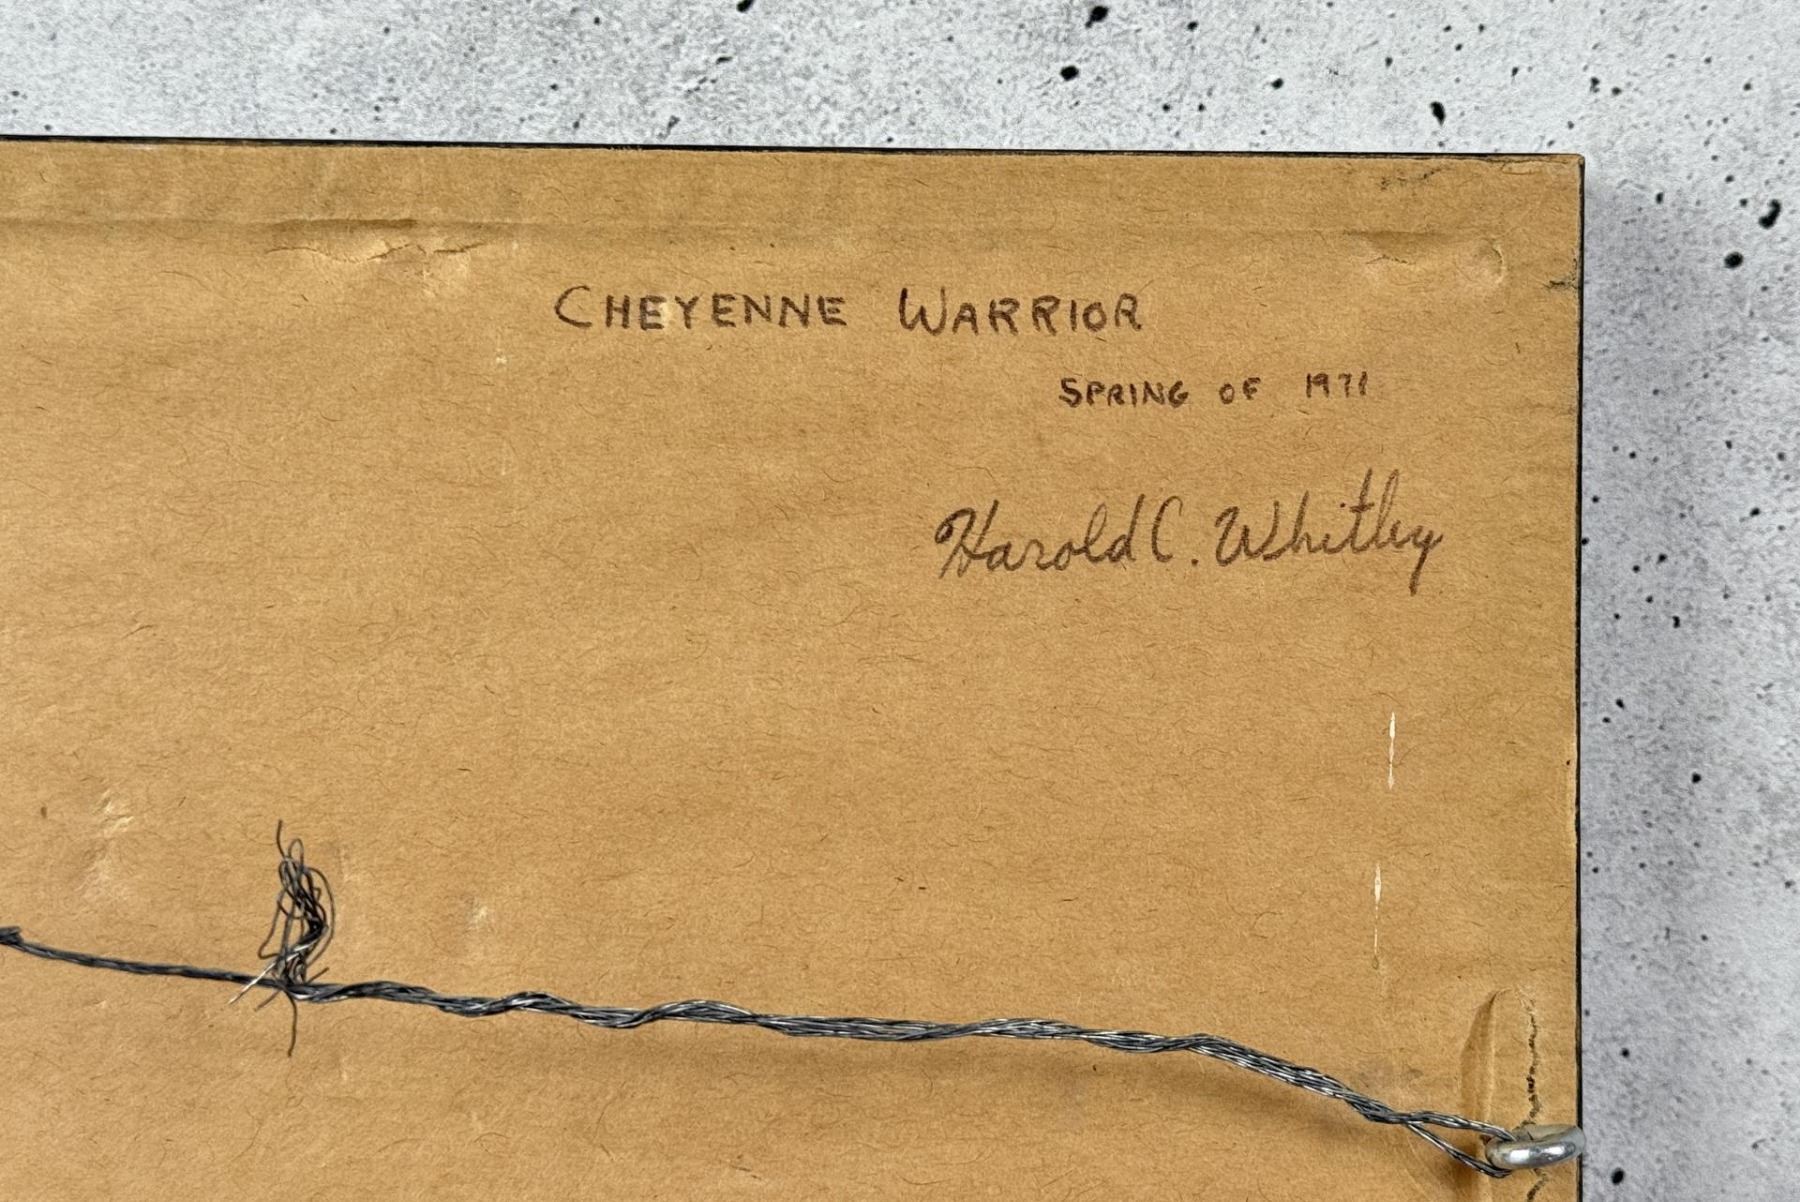 CHEYENNE WARRIOR
SPRING OF 1971
Harold C. Whitley